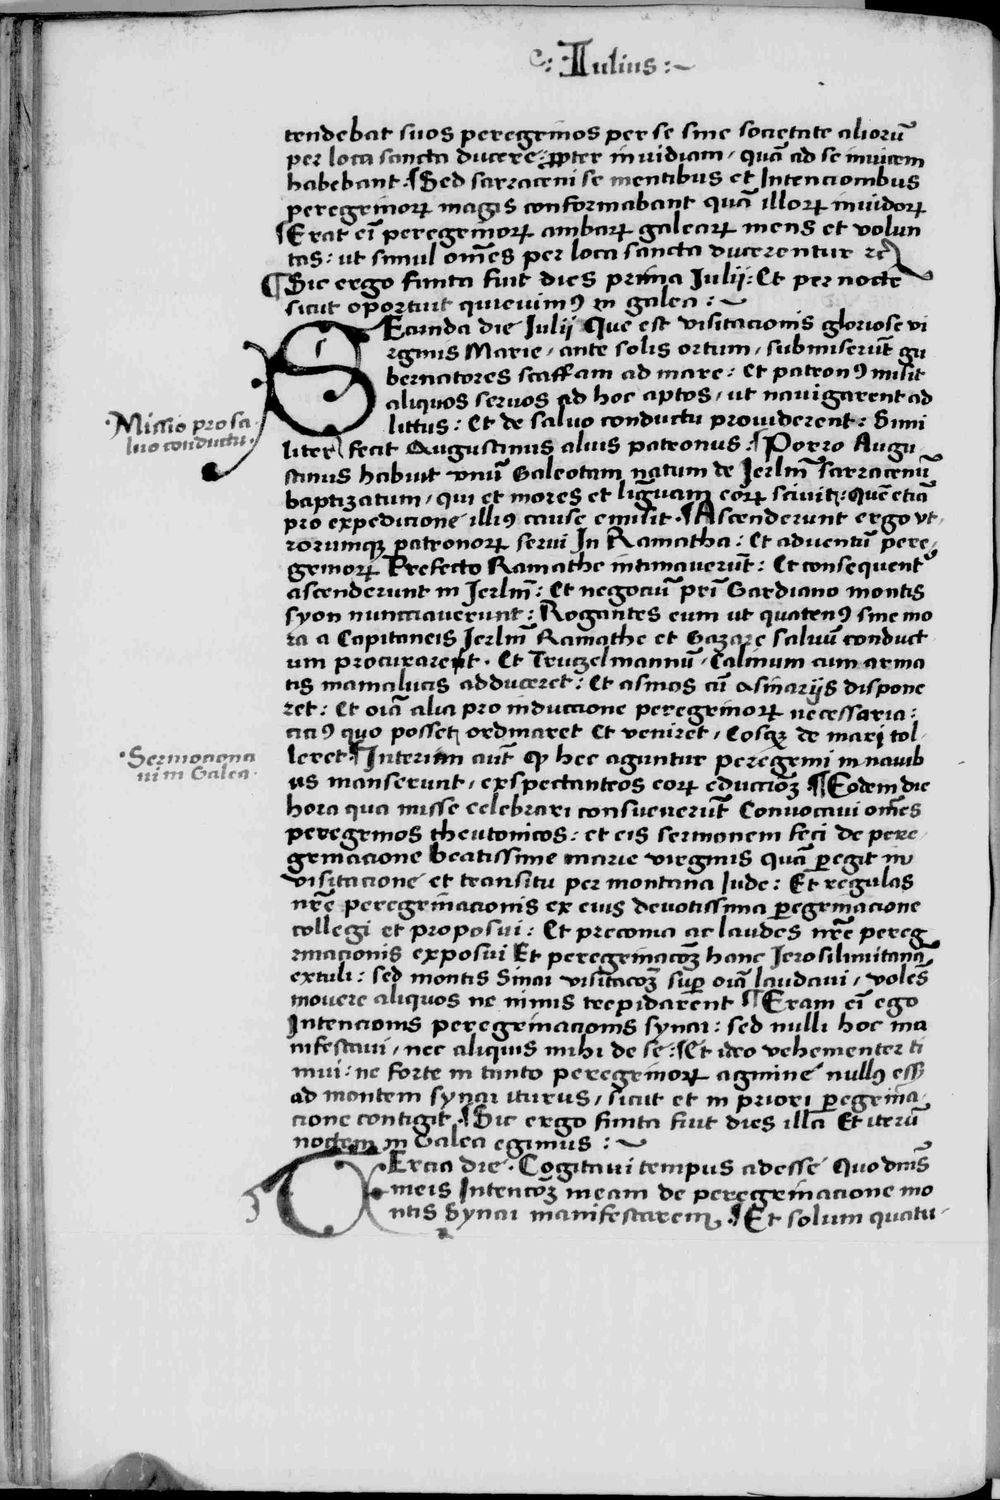 Iulius
tendebat suos peregrinos per se sine societate aliorū
per loca sancta ducere: ꝓpter inuidiam / quā ad se inuicem
habebant. ¶ Sed sarraceni se mentibus et Intencionibus
peregrinoꝝ magis conformabant quā illoꝝ inuidoꝝ
¶ Erat eī peregrinoꝝ ambaꝝ galeaꝝ mens et volun
tas: ut simul om̄es per loca sancta ducerentur ⁊c̄
¶ Sic ergo finita fuit dies prima Iulij: Et per nocte
sicut oportuit quieuimꝰ in galea :~
SEcunda die Iulij Que est visitacionis gloriose vi
rginis Marie / ante solis ortum / submiserūt gu
bernatores scaffam ad mare: Et patronꝰ misit
aliquos seruos ad hoc aptos / ut nauigarent ad
littus: Et de saluo conductu prouiderent: Simi
Missio pro sa
luo conductu.
liter fecit Augustinus alius patronus: ¶ Porro Augu
stinus habuit vnū Galeotam natum de Ierl̄m sarracenū
baptizatum / qui et mores et liguam eoꝝ sciuit: Quē etiā
pro expedicione illiꝰ cause emisit. ¶ Ascenderunt ergo vt
rorumqꝫ patronoꝝ serui In Ramatha: Et aduentū pere
grinoꝝ Prefecto Ramathe intimauerūt: Et consequent
ascenderunt in Ierl̄m: Et negociū pr̄i Gardiano montis
syon nuncciauerunt: Rogantes eum ut quatenꝰ sine mo
ra a Capitaneis Ierl̄m Ramathe et Gazare saluū conduct
um procurarent. Et Trutzelmannū / Calinum cum arma
tis mamalucis adduceret: Et asinos cū asinarijs dispone
ret: Et oīa alia pro induccione peregrinoꝝ necessaria:
ciciꝰ quo posset ordinaret Et veniret / Eosqꝫ de mari tol
leret ¶ Interim aūt ꝙ hec aguntur peregrini in nauib
us manserunt / exspectantes eoꝝ educcioꝫ ¶ Eodem die
Sermocina
ui in Galea.
hora qua misse celebrari consueuerūt Conuocaui om̄es
peregrinos theutonicos: et eis sermonem feci de pere
grinacione beatissime marie virginis quā ꝑegit in
visitacione et transitu per montana Iude: Et regulas
nr̄e peregrinacionis ex eius deuotissima ꝑegrinacione
collegi et proposui: Et preconia ac laudes nr̄e pereg
rinacionis exposui Et peregrinacoꝫ hanc Ierosilimitanā
extuli: sed montis Sinai visitacoꝫ suꝑ oīa laudaui / volēs
mouere aliquos ne nimis trepidarent ¶ Eram eī ego
Intencionis peregrinacionis synai: sed nulli hoc ma
nifestaui / nec aliquis mihi de se: ¶ Et ideo vehementer ti
mui: ne forte in tanto peregrinoꝝ agmine nullꝰ esset
ad montem synai iturus / sicut et in priori ꝑegrina
cione contigit. ¶ Sic ergo finita fuit dies illa Et iterū
noctem in Galea egimus :~
TErcia die. Cogitaui tempus adesse Quo dn̄is
meis Intencoꝫ meam de peregrinacione mo
ntis Synai manifestarem. ¶ Et solum quatu